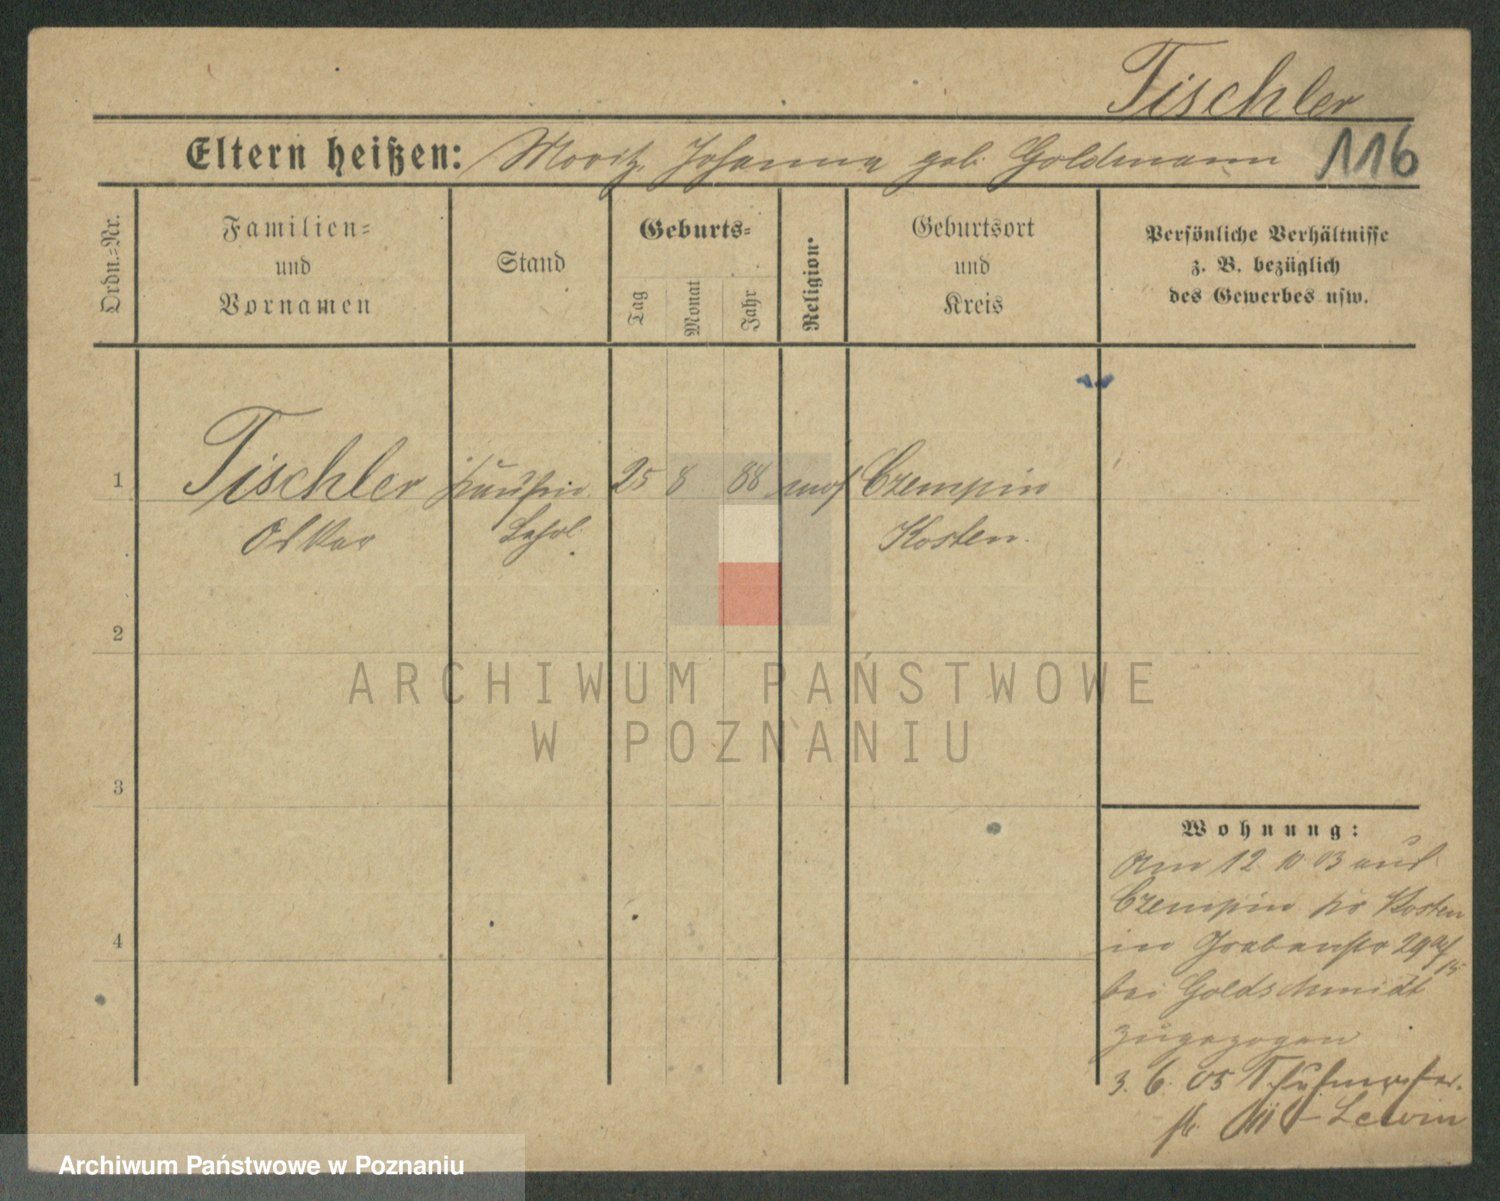 Tischler
Eltern heißen: Moritz Johanna geb. Goldmann 116
Ordn.=Nr.
Familien=
und
Vornamen
Stand
Geburts=
Tag
Monat
Jahr
Religion
Geburtsort
und
Kreis
Persönliche Verhältnisse
z. B. bezüglich
des Gewerbes usw.
1 Tischler 25 8 88 mos Czempin
Oskar Lehrl. Kosten.
2
3
4
ARCHIWUM PAŃSTWOWE
W POZNANIU
Wohnung:
Am 12 10 03 aus
Czempin Kr Kosten
in Grabenstr 29
bei Goldschmidt
zugezogen
3. 6. 05
Lewin
Archiwum Państwowe w Poznaniu